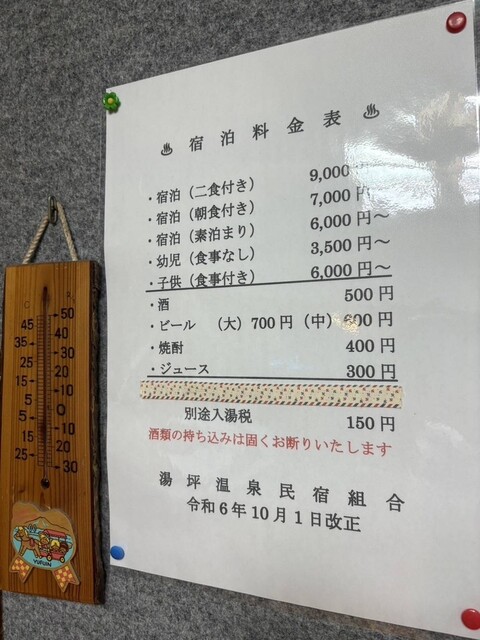 ♨ 宿泊料金表 ♨
・宿泊（二食付き） 9,000円～
・宿泊（朝食付き） 7,000円～
・宿泊（素泊まり） 6,000円～
・幼児（食事なし） 3,500円～
・子供（食事付き） 6,000円～
・酒 500円
・ビール （大）700円（中）600円
・焼酎 400円
・ジュース 300円
別途入湯税 150円
酒類の持ち込みは固くお断りいたします
湯坪温泉民宿組合
令和6年10月1日改正
C
45 50
35 40
25 30
15 20
5 10
5 0
15 10
25 20
30
YUFUIN